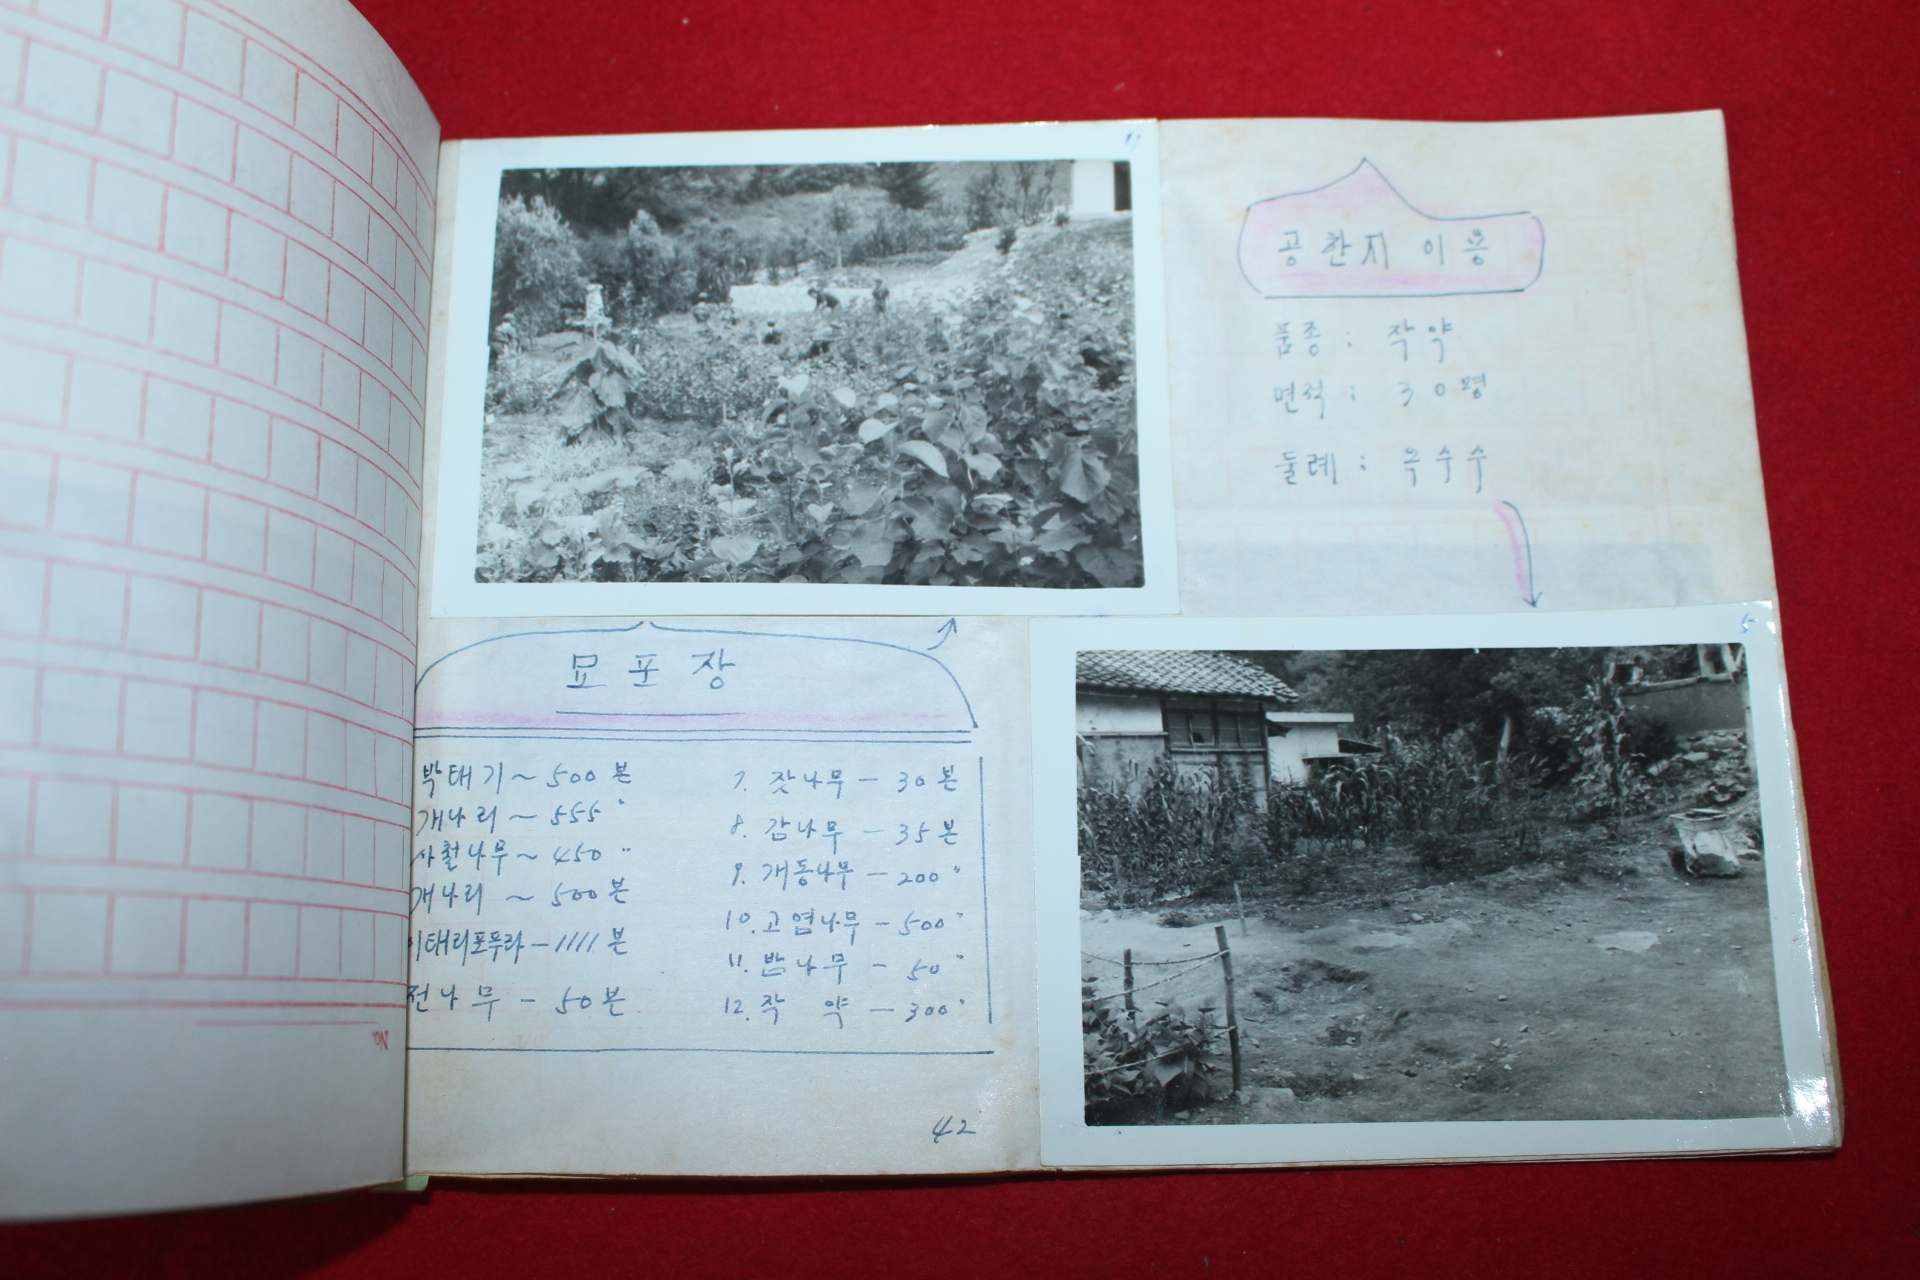 공한지 이용
품종 : 작약
면적 : 30평
둘레 : 옥수수
묘포장
박태기 ~ 500본
개나리 ~ 555 〃
사철나무 ~ 450 〃
개나리 ~ 500본
이태리포푸라 - 1111본
전나무 - 50본
7. 잣나무 - 30본
8. 감나무 - 35본
9. 개동나무 - 200 〃
10. 고염나무 - 500 〃
11. 밤나무 - 50 〃
12. 작 약 - 300 〃
42
No.
5